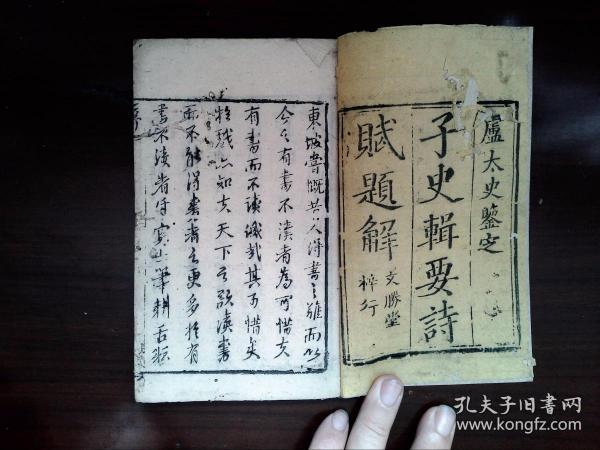 盧太史鑒定
子史輯要詩
賦題解
文勝堂
梓行
東坡嘗慨昔人得書之難而以
今之有書不讀者為可惜夫
有書而不讀誠哉其可惜矣
知夫天下之欲讀書
而不能得書者之更多於有
書不讀者乎寒士筆耕舌
序
孔夫子旧书网
www.kongfz.com